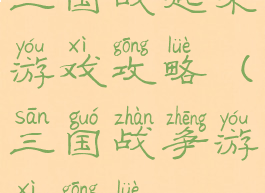 三国战起来
yóu xì gōng lüè
游戏攻略（
sān guó zhàn zhēng yóu
三国战争游
xì gōng lüè